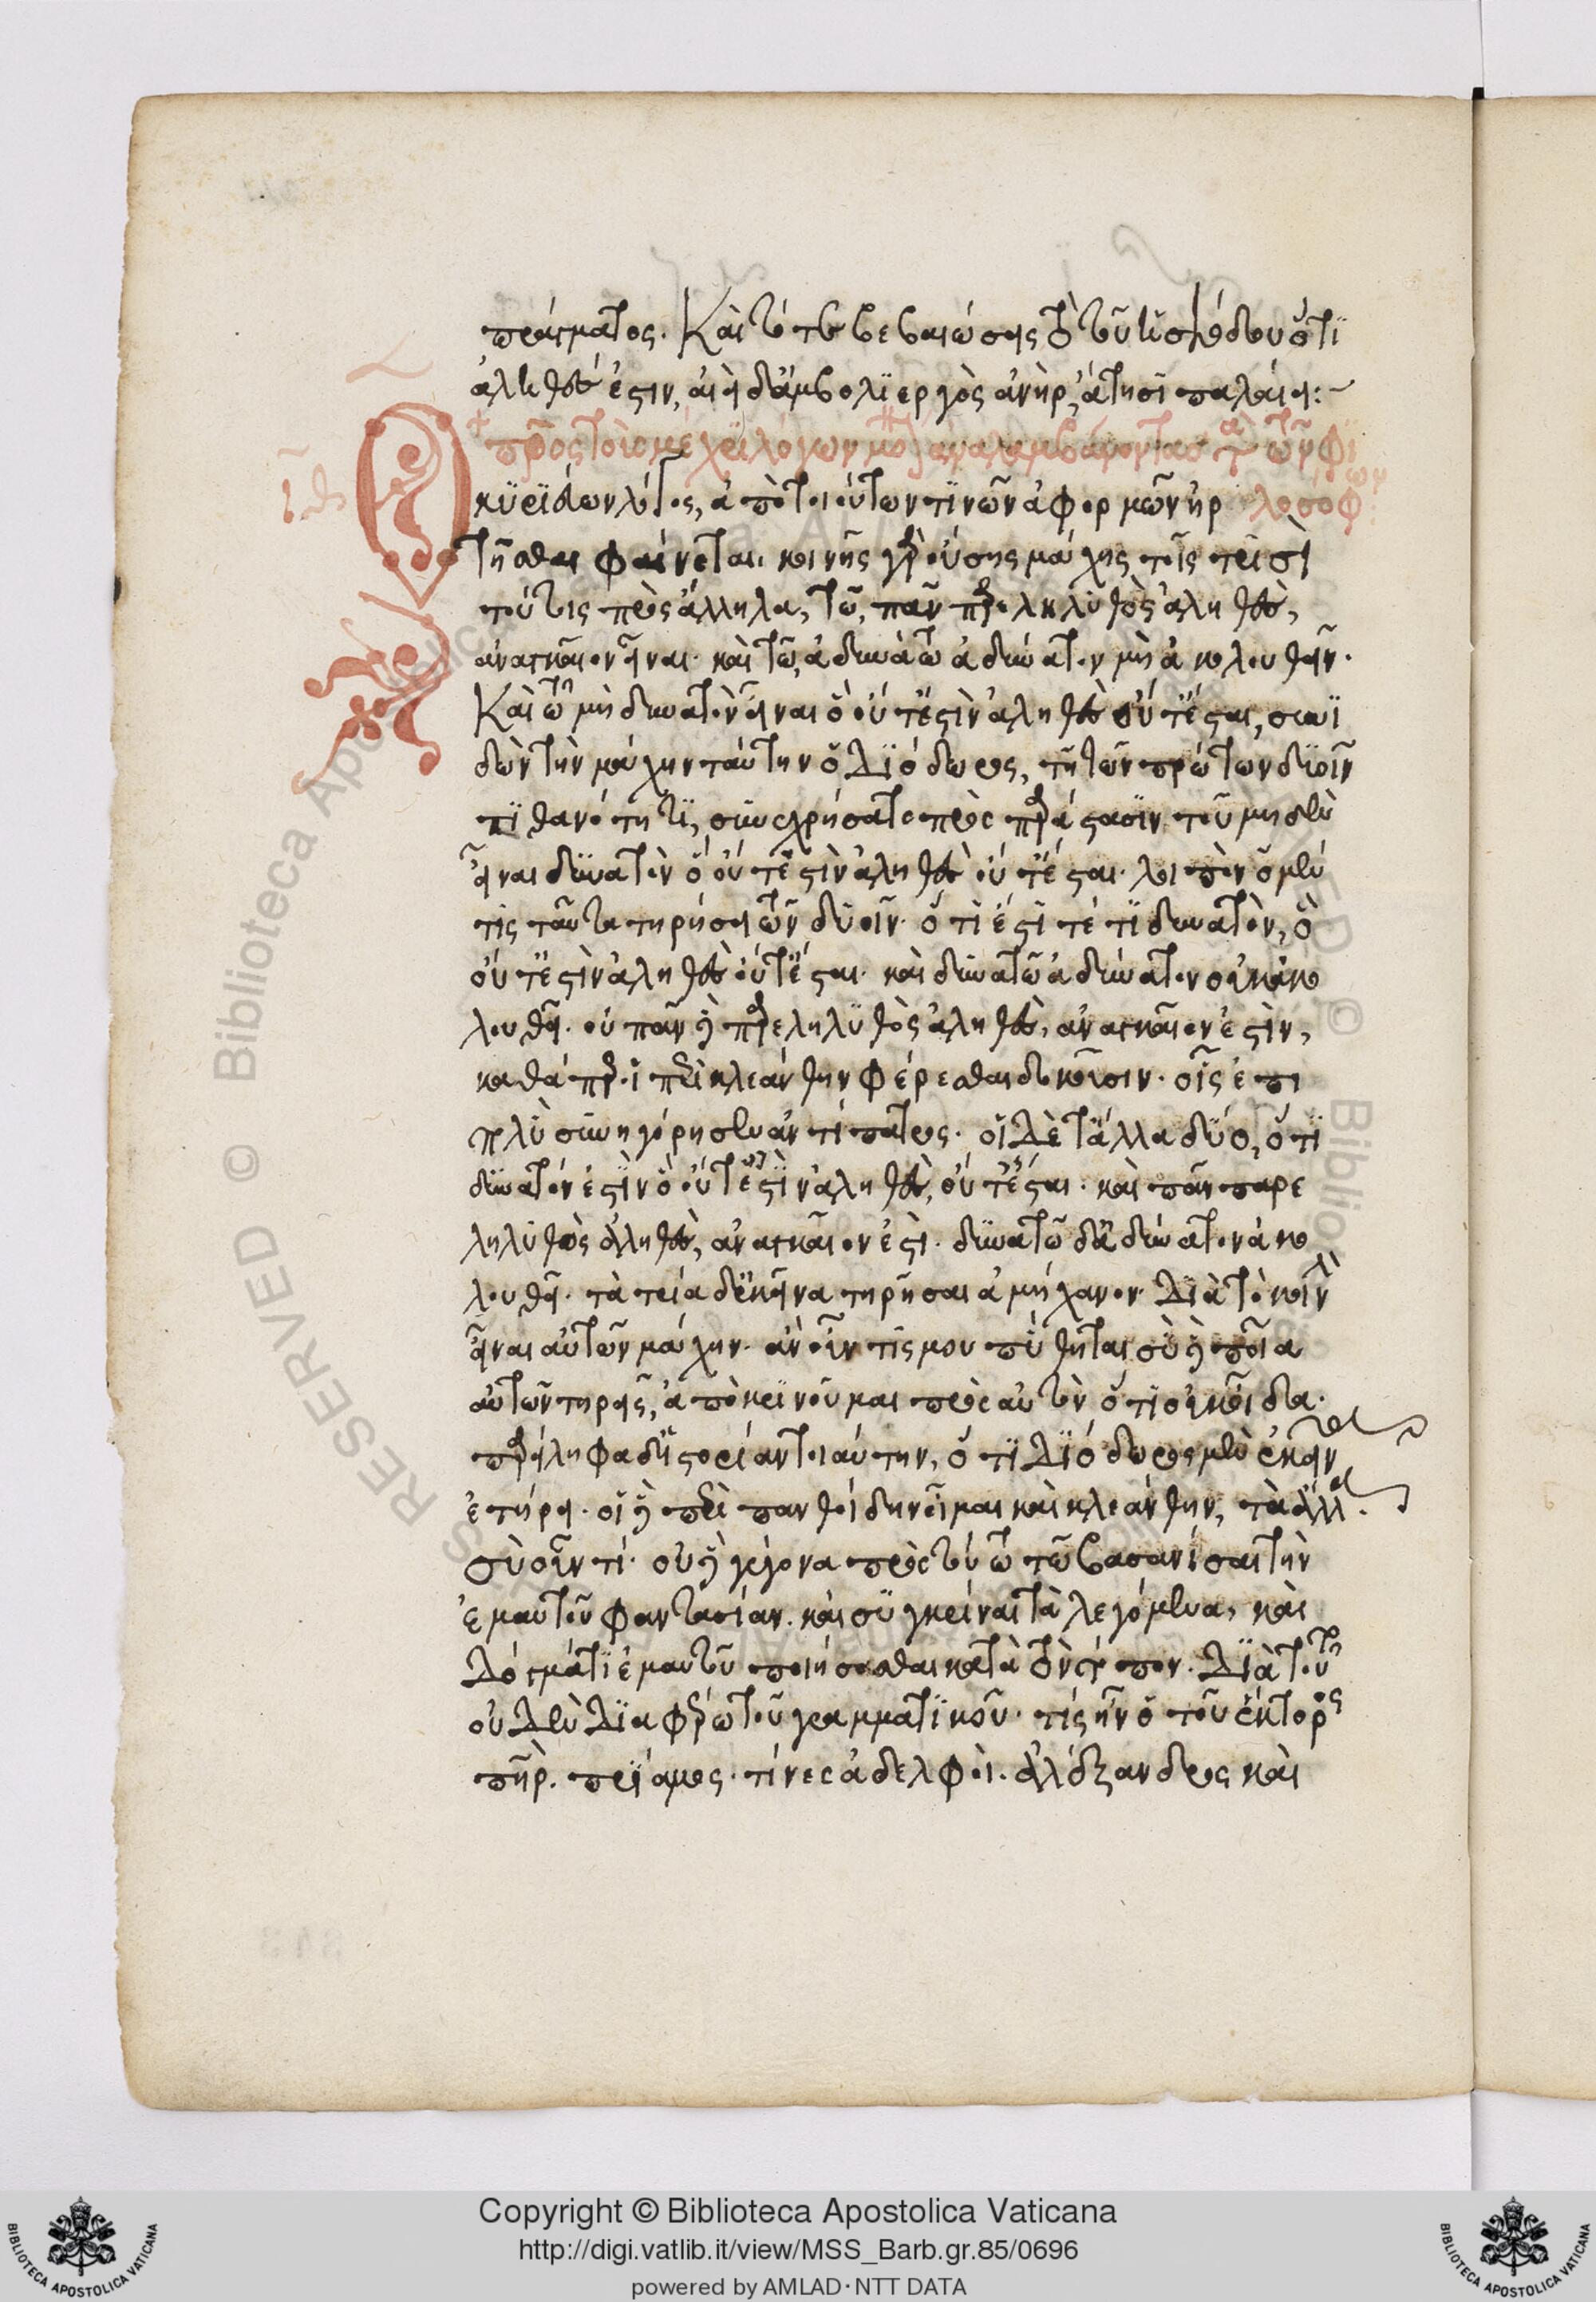 πράγματος. Καὶ τότε βεβαιώσεις τὸ τοῦ ἡσιόδου ὅτι
ἀληθές ἐστιν, αἰεὶ δ' ἀμβολιεργὸς ἀνὴρ, ἄτησι παλαίει:~
πρὸς τοὺς μέχρι λόγων μόνον ἀναλαμβάνοντας τὰ τῶν φι
λοσόφων
ιθ
Ὁ κυριεύων λόγος, ἀπὸ τοιούτων τινῶν ἀφορμῶν ἠρ
τῆσθαι φαίνεται. κοινῆς γὰρ οὔσης μάχης τοῖς τρισὶ
τούτοις πρὸς ἄλληλα, τῶ, πᾶν παρεληλυθὸς ἀληθὲς,
ἀναγκαῖον εἶναι. καὶ τῶ, ἀδυνάτω ἀδύνατον μὴ ἀκολουθεῖν.
Καὶ τῶ μὴ δυνατὸν εἶναι ὃ οὔτ' ἔστιν ἀληθὲς οὔτ' ἔσται, συνι
δὼν τὴν μάχην ταύτην ὁ Διόδωρος, τῆ τῶν πρώτων δυοῖν
πιθανότητι, συνεχρήσατο πρὸς παράστασιν τοῦ μηδὲν
εἶναι δυνατὸν ὃ οὔτ' ἔστιν ἀληθὲς οὔτ' ἔσται. λοιπὸν ὁ μέν
τις ταῦτα τηρήσει τῶν δυοῖν. ὅτι ἔστι τέ τι δυνατὸν, ὃ
οὔτ' ἔστιν ἀληθὲς οὔτ' ἔσται. καὶ δυνατῶ ἀδύνατον οὐκ ἀκο
λουθεῖ. οὐ πᾶν δὲ παρεληλυθὸς ἀληθὲς, ἀναγκαῖον ἐστιν,
καθάπερ οἱ περὶ κλεάνθην φέρεσθαι δοκοῦσιν. οἷς ἐπι
πολὺ συνηγόρησεν ἀντίπατρος. οἱ δὲ τἄλλα δύο, ὅτι
δυνατόν ἐστιν ὃ οὔτ' ἔστιν ἀληθὲς, οὔτ' ἔσται. καὶ πᾶν παρε
ληλυθὼς ἀληθὲς, ἀναγκαῖον ἐστι. δυνατῶ δ' ἀδύνατον ἀκο
λουθεῖ. τὰ τρία δ' ἐκεῖνα τηρῆσαι ἀμήχανον. Διὰ τὸ κοινὴν
εἶναι αὐτῶν μάχην. ἂν οὖν τίς μου πύθηται σὺ δὲ ποῖα
αὐτῶν τηρεῖς, ἀποκρινοῦμαι πρὸς αὐτὸν ὅτι οὐκ οἶδα.
παρείληφα δ' ἱστορίαν τοιαύτην, ὅτι Διόδωρος μὲν ἐκεῖν
ἐτήρει. οἱ δὲ περὶ πανθοίδην οἶμαι καὶ κλεάνθην, τὰ ἄλλα.
σὺ οὖν τί. οὐδὲ γέγονα πρὸς τούτω τῶ βασανίσαι τὴν
ἐμαυτοῦ φαντασίαν. καὶ συγκρῖναι τὰ λεγόμενα, καὶ
Δόγμά τι ἐμαυτοῦ ποιήσασθαι κατὰ τὸν τόπον. Διὰ τοῦτο
οὐδὲν Διαφέρω τοῦ γραμματικοῦ. τίς ἦν ὁ τοῦ ἕκτορος
πατὴρ. πρίαμος. τίνες ἀδελφοὶ. ἀλέξανδρος καὶ
Copyright © Biblioteca Apostolica Vaticana
http://digi.vatlib.it/view/MSS_Barb.gr.85/0696
powered by AMLAD·NTT DATA